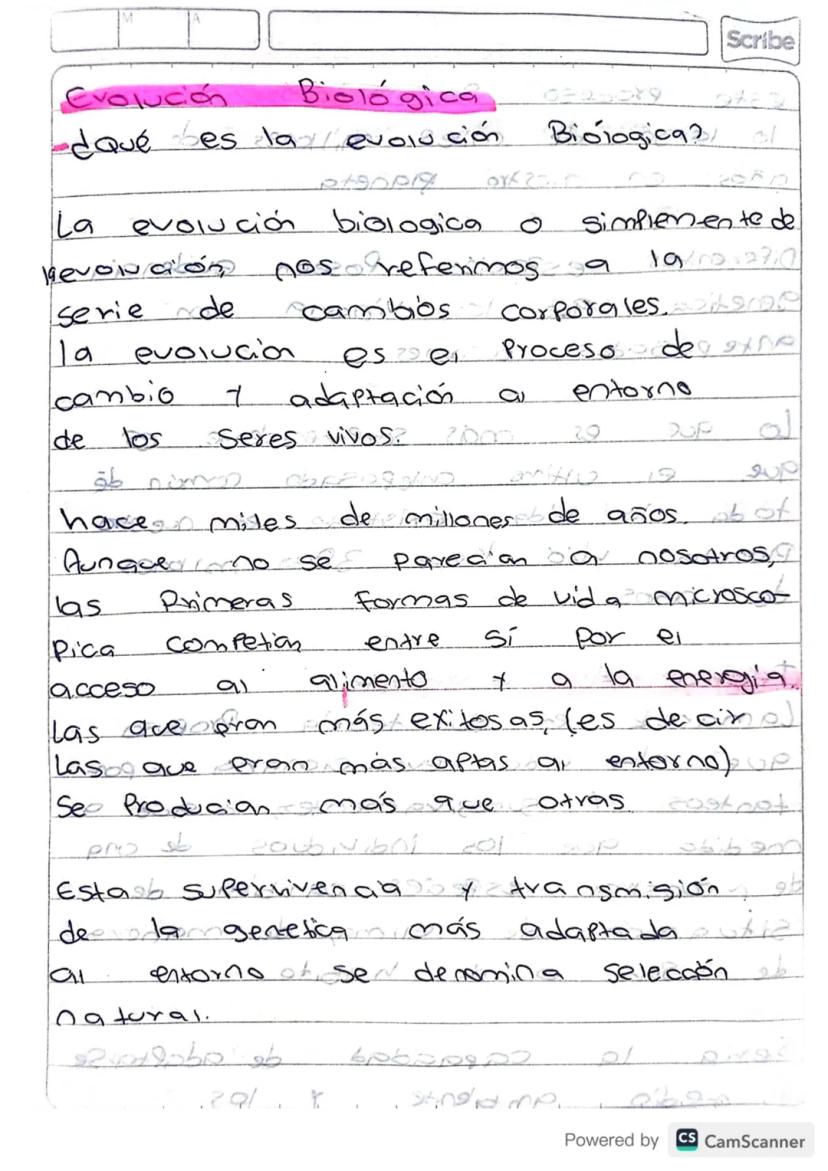 M
A
Scribe
Evolución Biológica
-¿Qué es la evolución Biólogica?
La evolución biologica o simplemente de
la evolución, nos referimos a la
serie de cambios corporales.
la evolución es el Proceso de
cambio y adaptación al entorno
de los seres vivos.
hace miles de millones de años.
Aunque no se parecían a nosotros,
las Primeras formas de vida microsco-
Pica competían entre sí por el
acceso al alimento y a la energía.
Las que eran más exitosas, (es decir
Las que eran más aptas al entorno)
Se Producían más que otras.
Esta supervivencia y transmisión
de la genetica más adaptada
al entorno se denomina selección
natural.
Powered by CS CamScanner